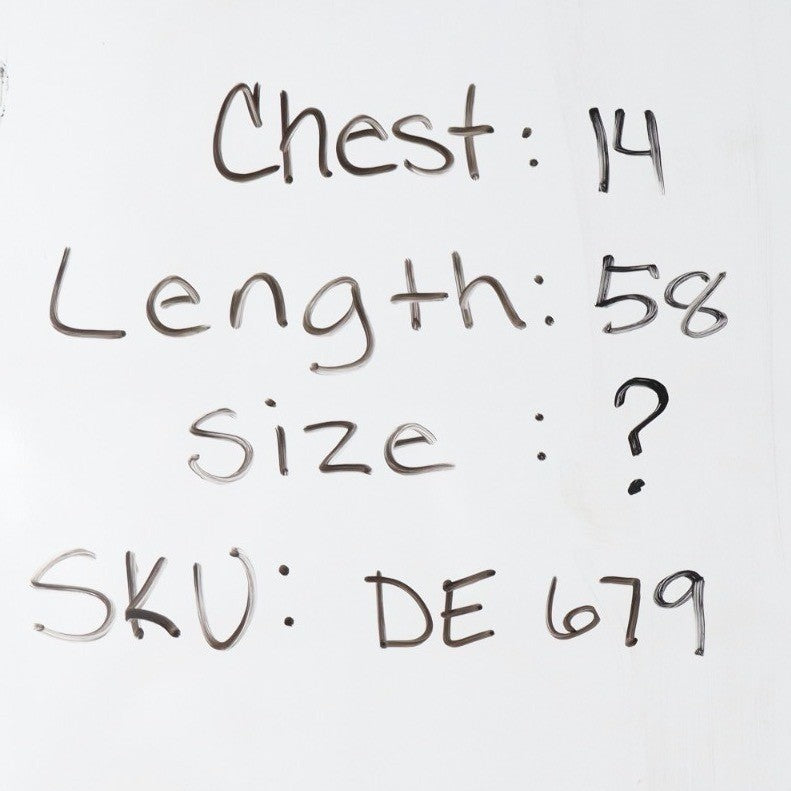 Chest: 14
Length: 58
Size : ?
SKU: DE 679